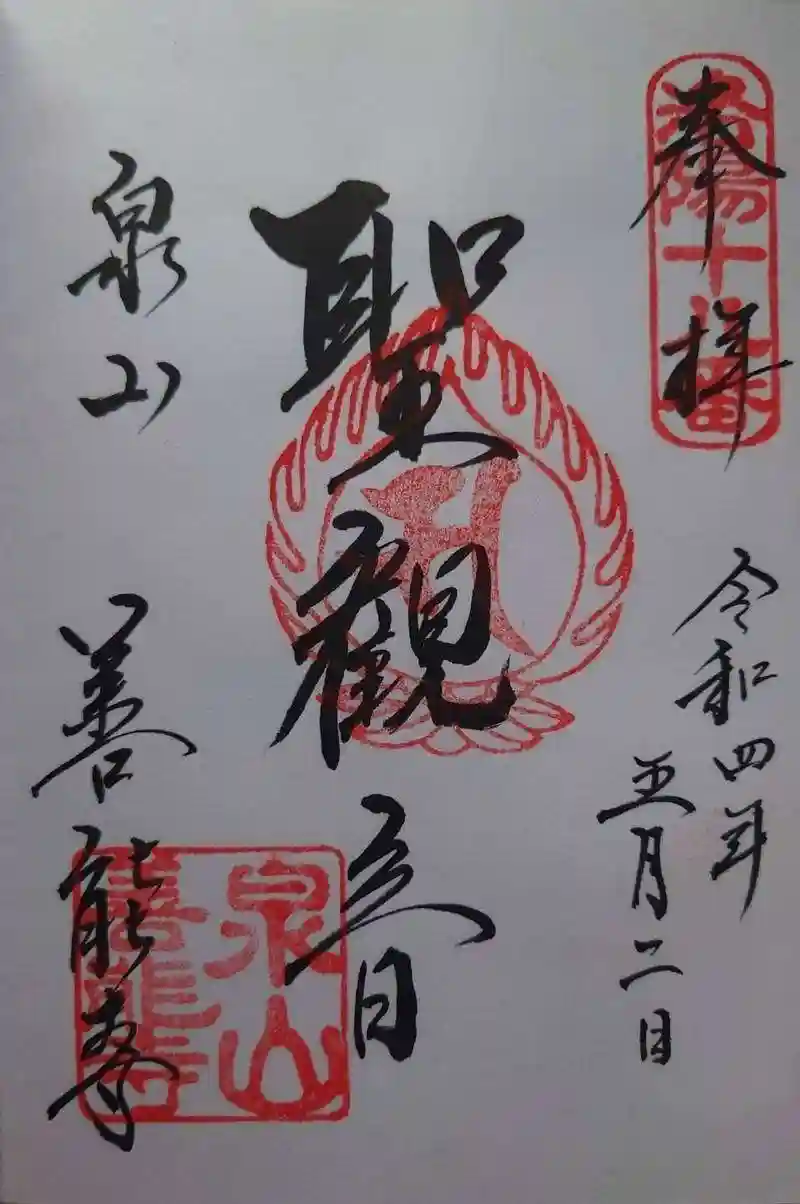 奉拝
洛陽十八番
令和四年
五月二日
聖觀音
泉山 善能寺
泉山
善能寺